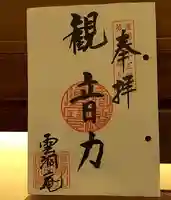 奉拝
観音力
雲洞庵